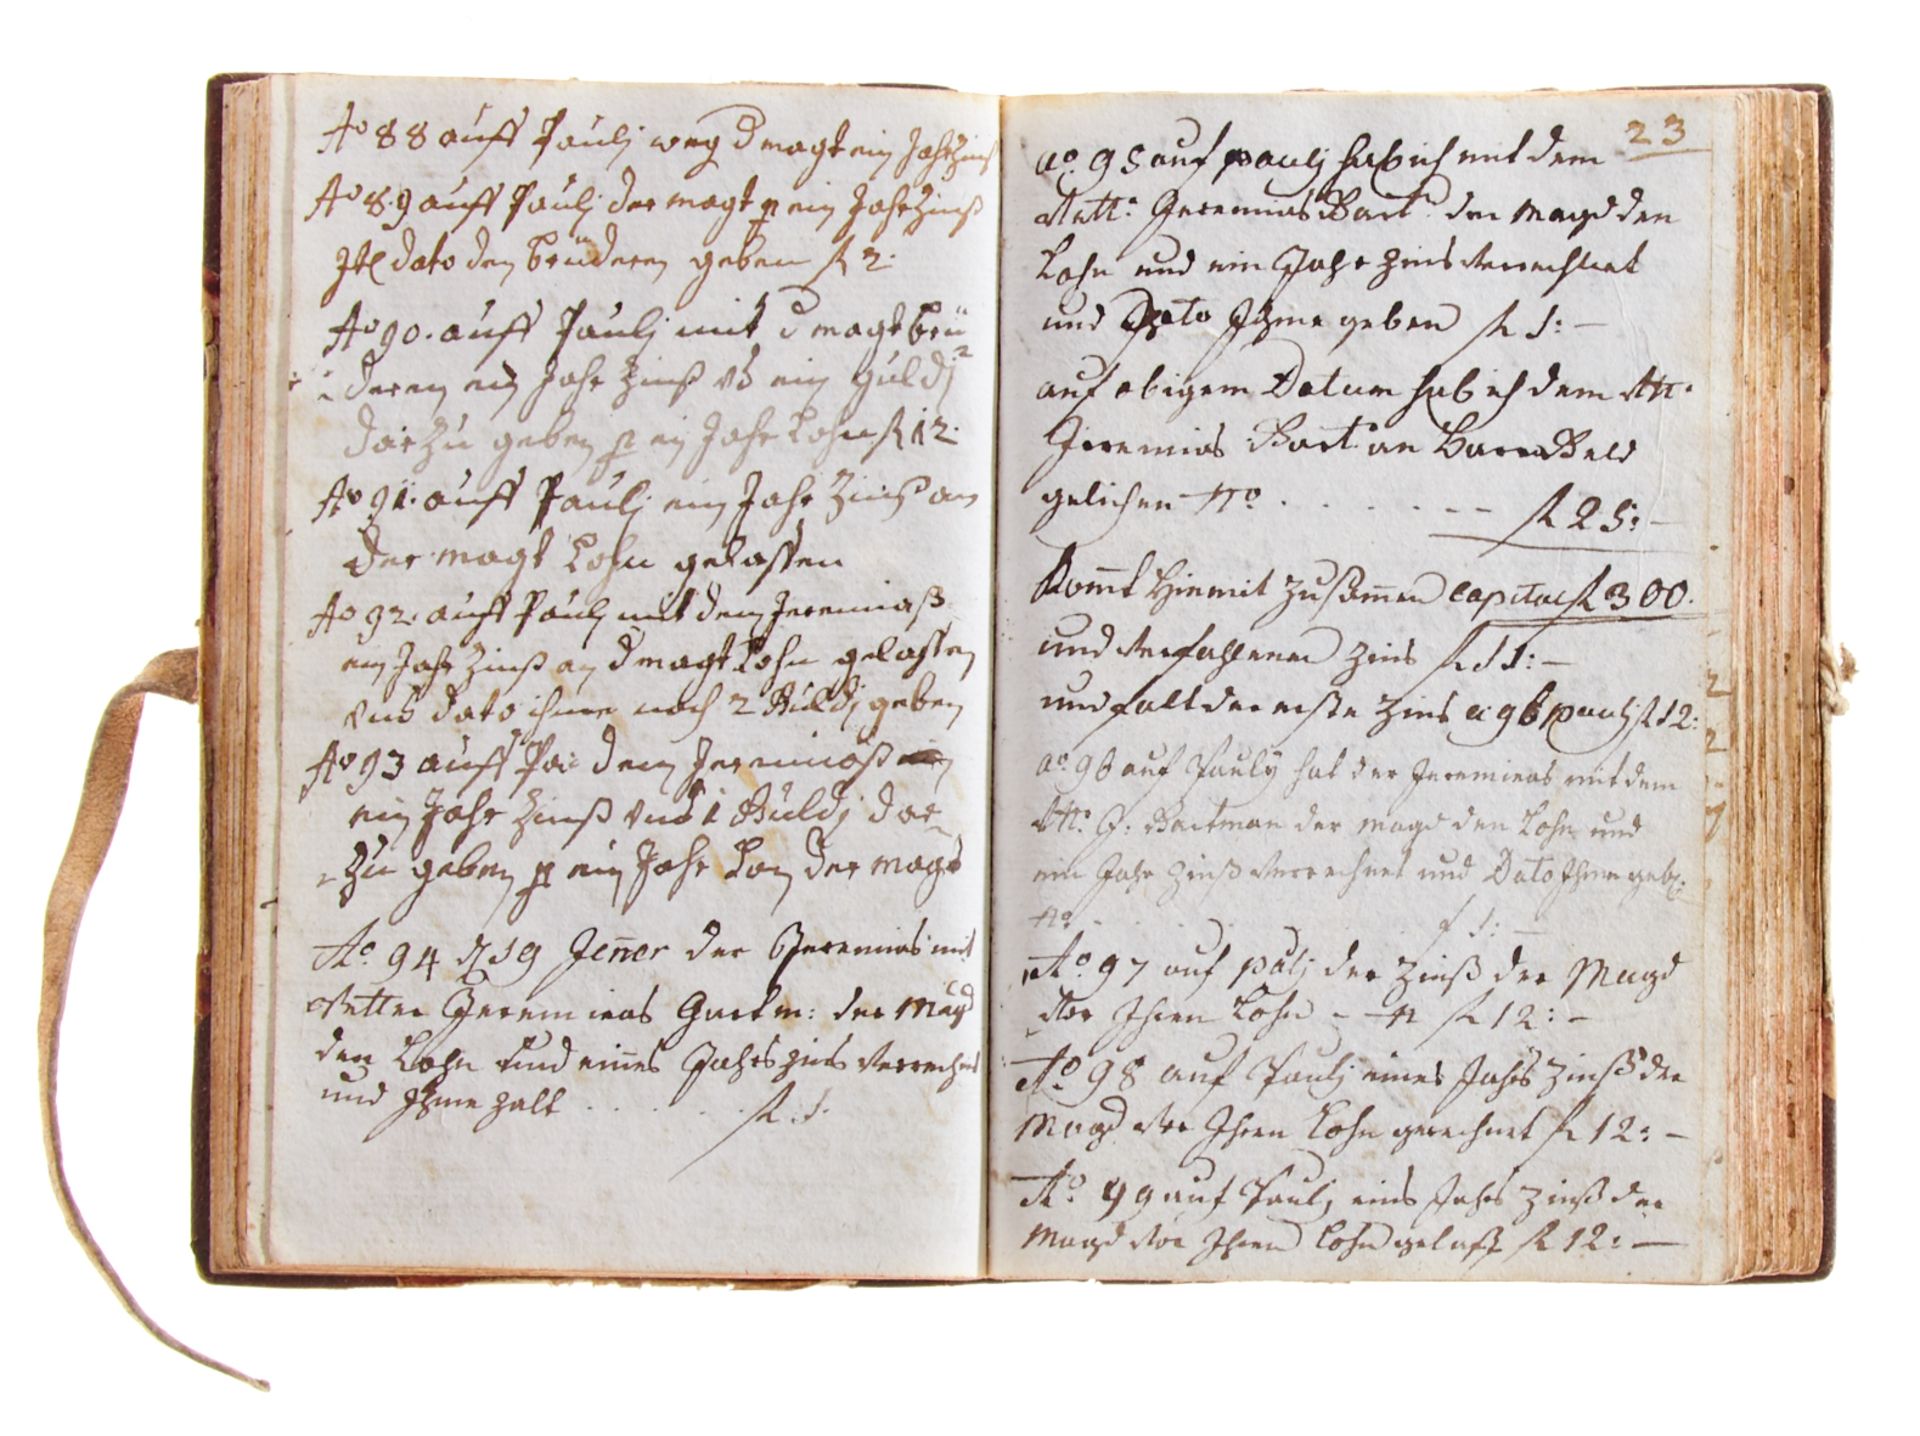 Aº 88 auff Paulj weg d magt ein Jahrzinß
Aº 89 auff Paulj der magt p ein Jahrzinß
Itl dato den brüderen geben fl 2.
Aº 90. auff Paulj mit d magt brü
deren ein Jahr Zinß vd ein guldj
dar Zu geben p ein Jahr Lohn fl 12.
Aº 91. auff Paulj ein Jahr Zinß an
der magt Lohn gelassen
Aº 92. auff Paulj mit dem Jeremiaß
ein Jahr Zinß an d magt Lohn gelassen
vnd dato ihme noch 2 Guldj geben
Aº 93 auff Pau dem Jeremiaß
ein Jahr Zinß vnd 1 Guldj dar
Zu geben p ein Jahr Lon der magt
Aº. 94 19 Jener der Jeremias mit
Vetter Jeremias der Magd
den Lohn und eines Jahrs zins verrechnet
und Ihme zalt . . . . . . fl. 1.
23
aº. 95 auf paulj hab ich mit dem
Vettº. Jeremias Bart. der Magd den
Lohn und ein Jahr zins verrechnet
und Dato Ihme geben fl 1: –
auf obigem Datum hab ich dem Vtt.
Jeremias Bart. an Baar Geld
gelichen . . . . . . . – – fl 25: –
Komt Hiemit Zusamen Capital fl 300.
und verfahlenen zins fl 11: –
und falt der erste zins a: 96 paulj fl 12:
aº. 96 auf Pauly hat der Jeremias mit dem
Vtt. J: Bartman der magd den Lohn und
ein Jahr Zinß verrechnet und Dato Ihme geb.
f 1: –
Aº. 97 auf paulj der Zinß der Magd
vor Ihren Lohn – fl 12: –
Aº 98 auf Paulj eines Jahrs zinß der
Magd vor Ihren Lohn gerechnet fl 12: –
Aº. 99 auf Paulj eins Jahrs Zinß der
Magd vor Ihren Lohn gelaß fl 12: –